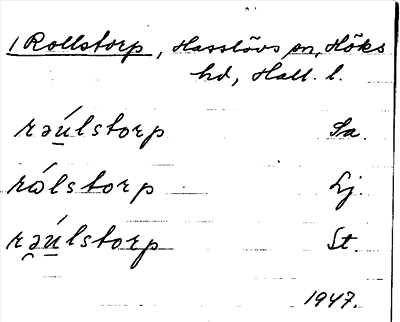 1 Rollstorp, Hasslövs sn, Höks
hd, Hall. l.
rəúlstorp Sa.
rǻlstorp Lj.
rəúlstorp St.
1947.